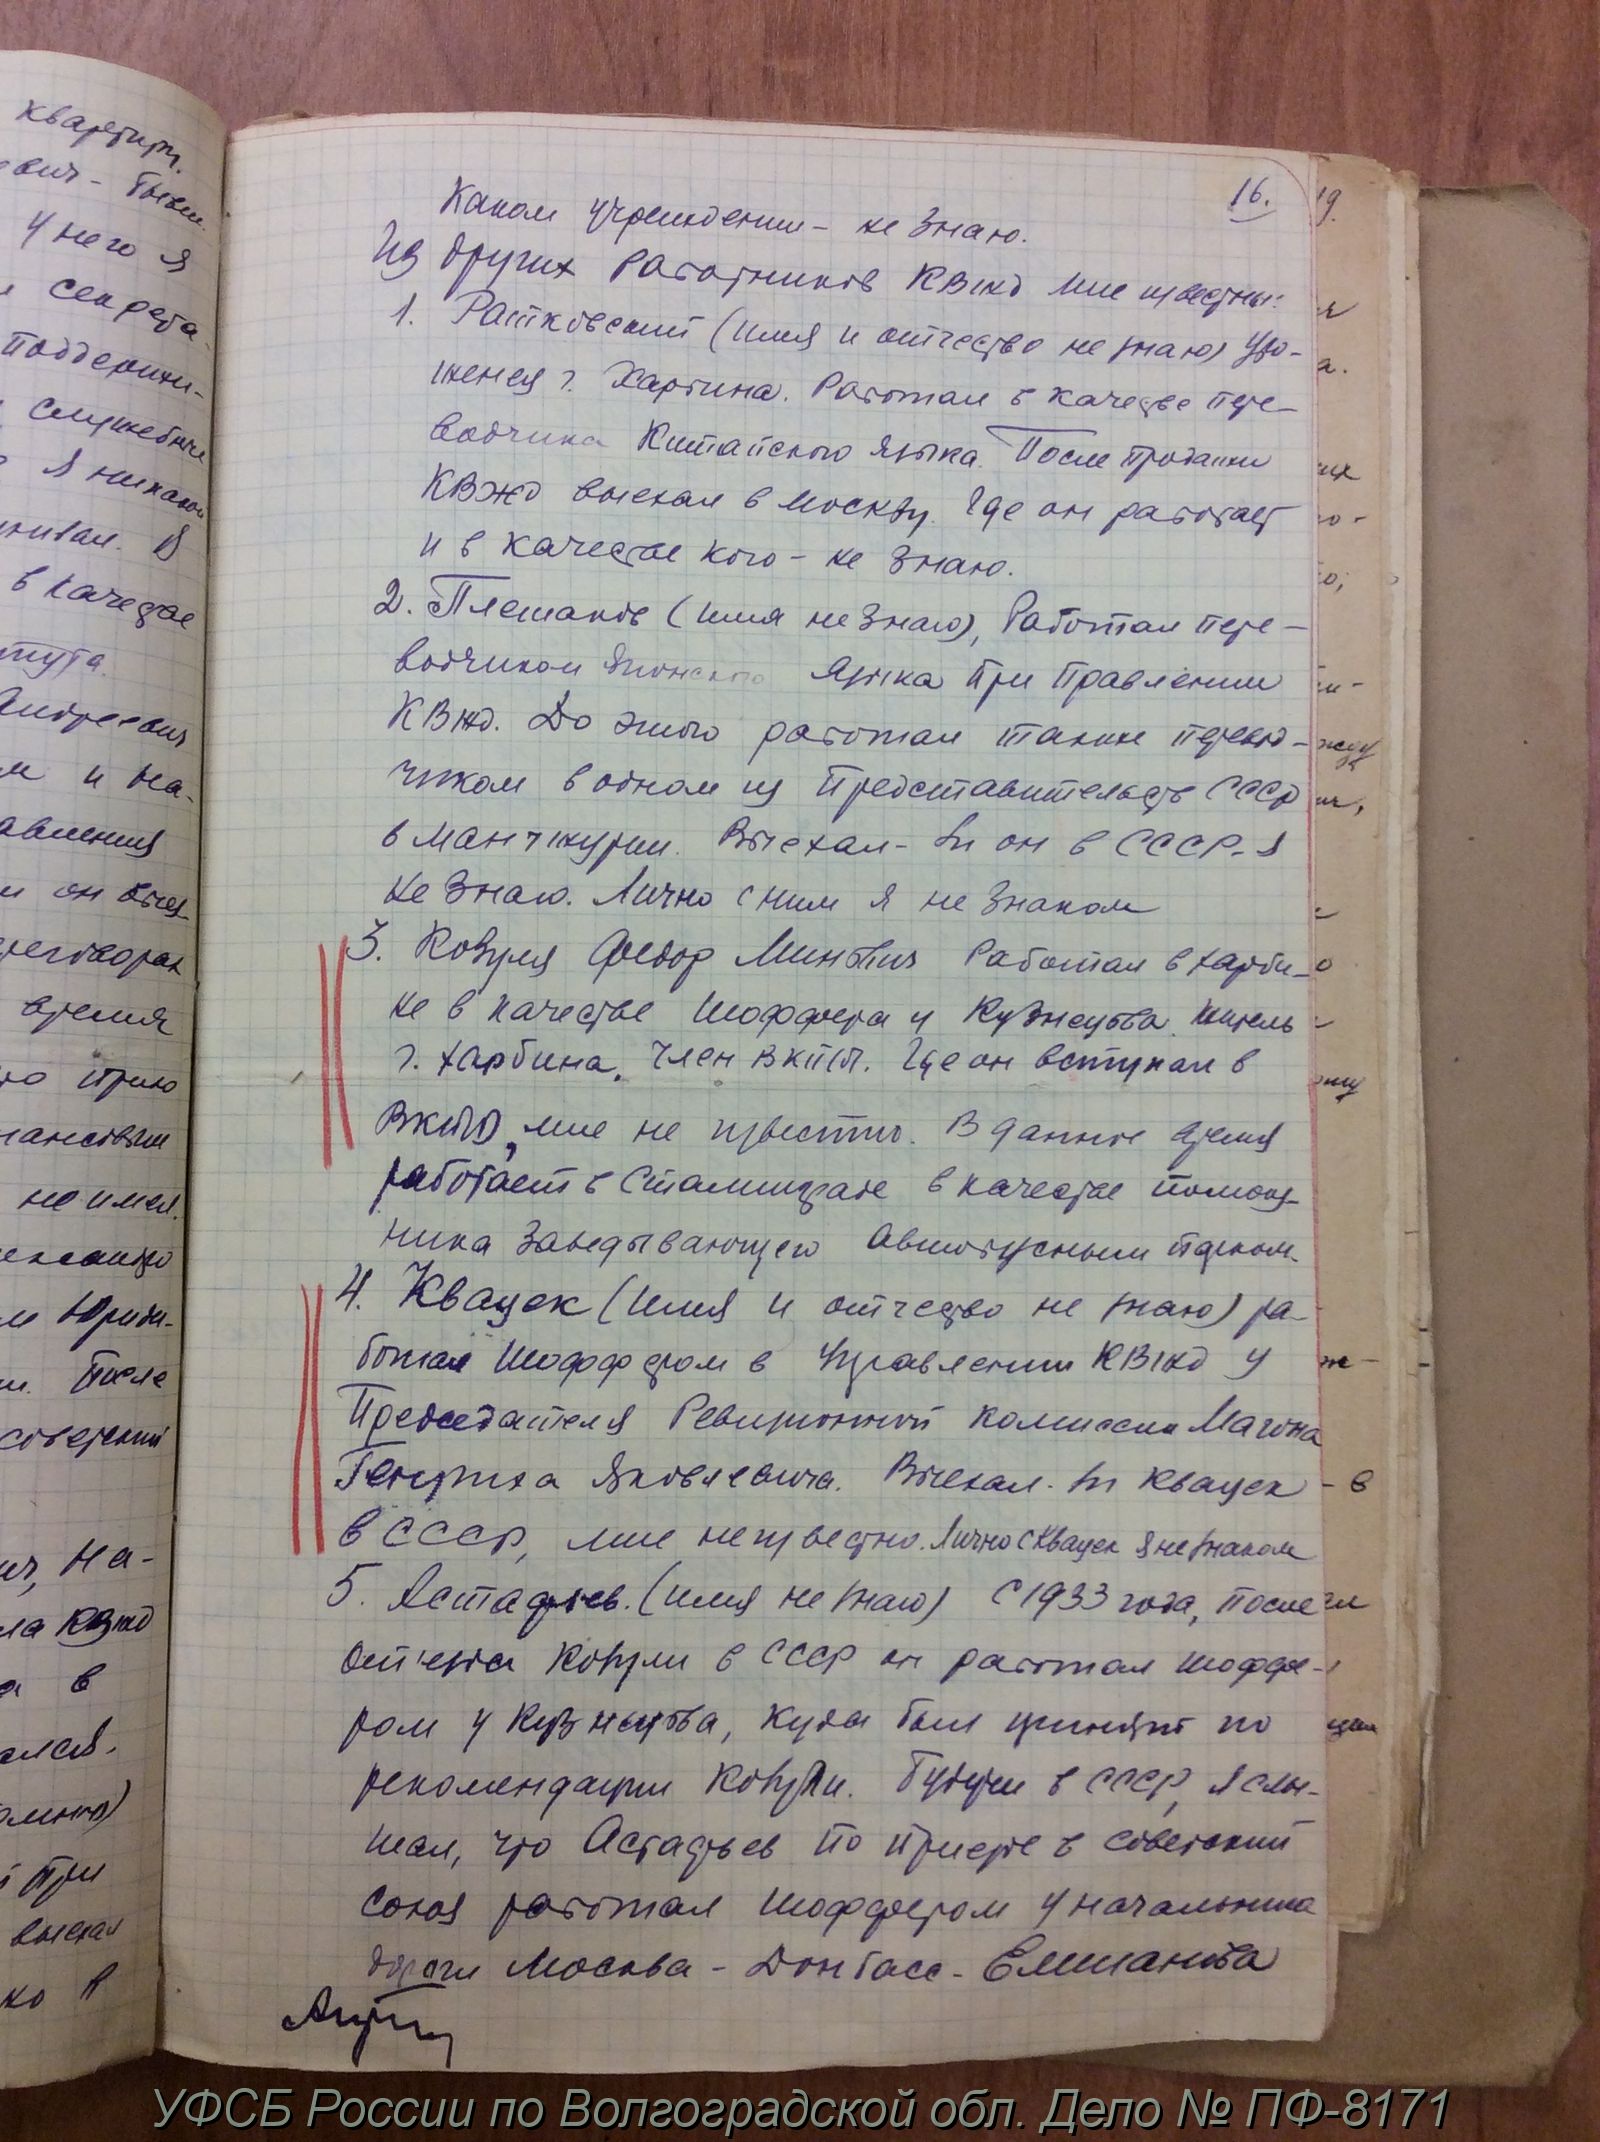 16.
Каком учреждении - не знаю.
Из других работников КВжд мне известны:
1. Ратковский (имя и отчество не знаю) уро-
женец г. Харбина. Работал в качестве пере-
водчика Китайского языка. После продажи
КВЖД выехал в Москву. Где он работает
и в качестве кого - не знаю.
2. Плешаков (имя не знаю), Работал пере-
водчиком японского языка при Правлении
КВжд. До этого работал также перевод-
чиком в одном из Представительств СССР
в Манчжурии. Выехал-ли он в СССР-я
не знаю. Лично с ним я не знаком
3. Ковуля Федор Минович Работал в Харби-
не в качестве шоффера у Кузнецова житель
г. Харбина, член ВКП(б). Где он вступал в
ВКП(б), мне не известно. В данное время
работает в Сталинграде в качестве помощ-
ника Заведывающего Автобусным парком.
4. Квацек (имя и отчество не знаю) ра-
ботал шоффером в Управлении КВжд у
Председателя Ревизионной комиссии Магона
Генриха Яковлевича. Выехал-ли Квацек
в СССР, мне неизвестно. Лично с Квацек я не знаком
5. Астафьев. (имя не знаю) С 1933 года, после
от'езда Ковули в СССР он работал шоффе-
ром у Кузнецова, куда был принят по
рекомендации Ковули. Будучи в СССР, я слы-
шал, что Астафьев по приезде в Советский
Союз работал шоффером у начальника
дороги Москва - Донбасс - Емшанова
квартиру.
у него я
секрета-
поддержи-
служебные
я никакой
в качестве
тута.
Андреевич
и на-
авления
время
не имел.
После
советский
на-
ла КВжд
а в
при
выехал
УФСБ России по Волгоградской обл. Дело № ПФ-8171